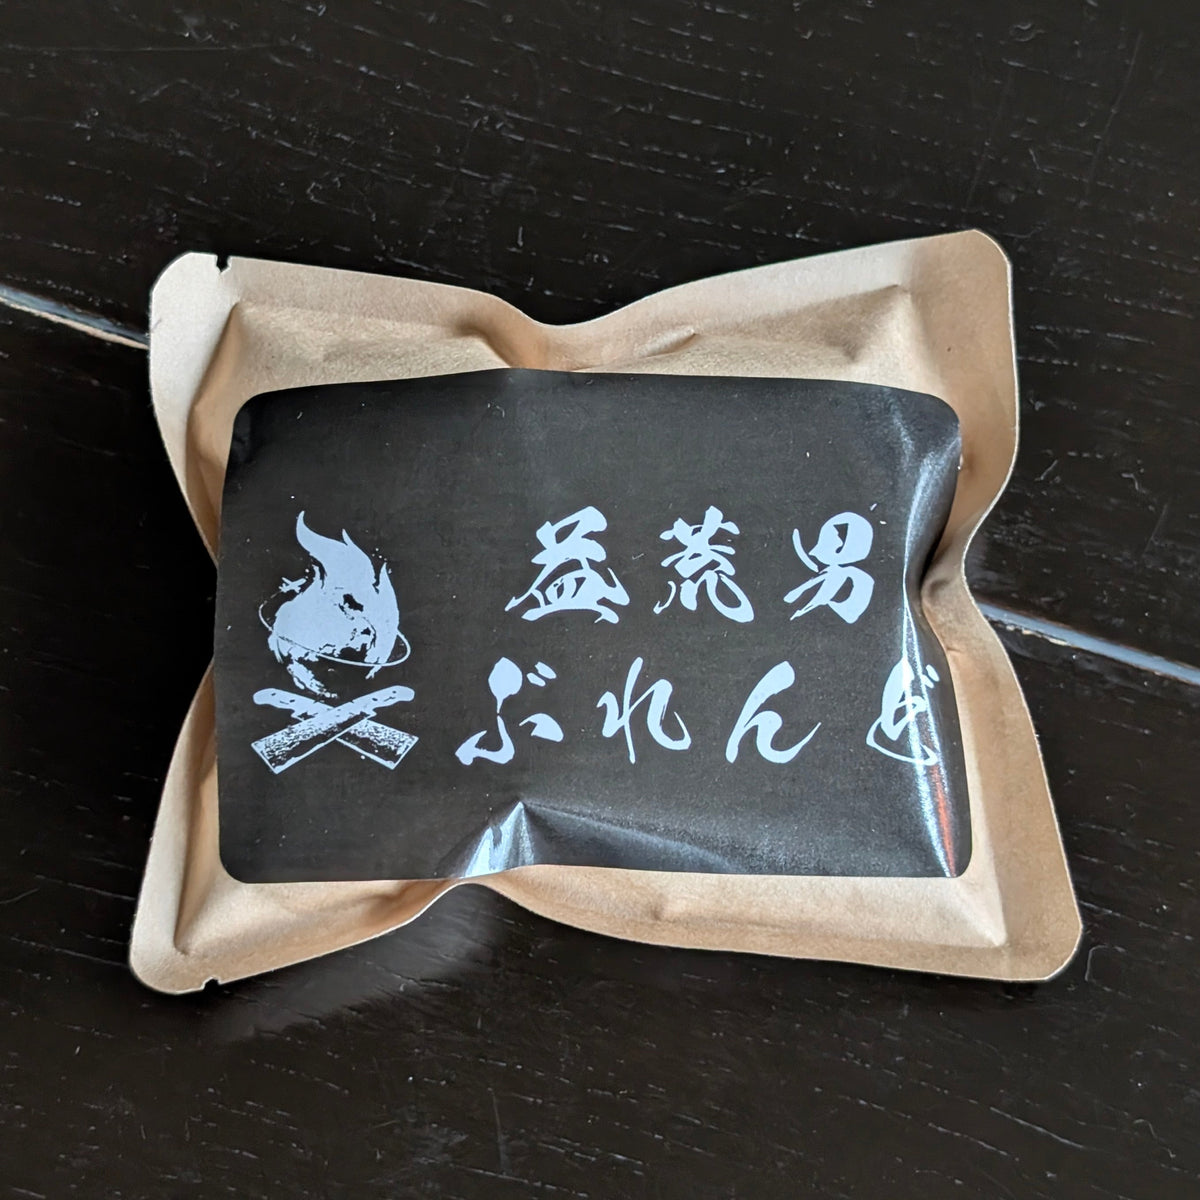 益荒男
ぶれんど